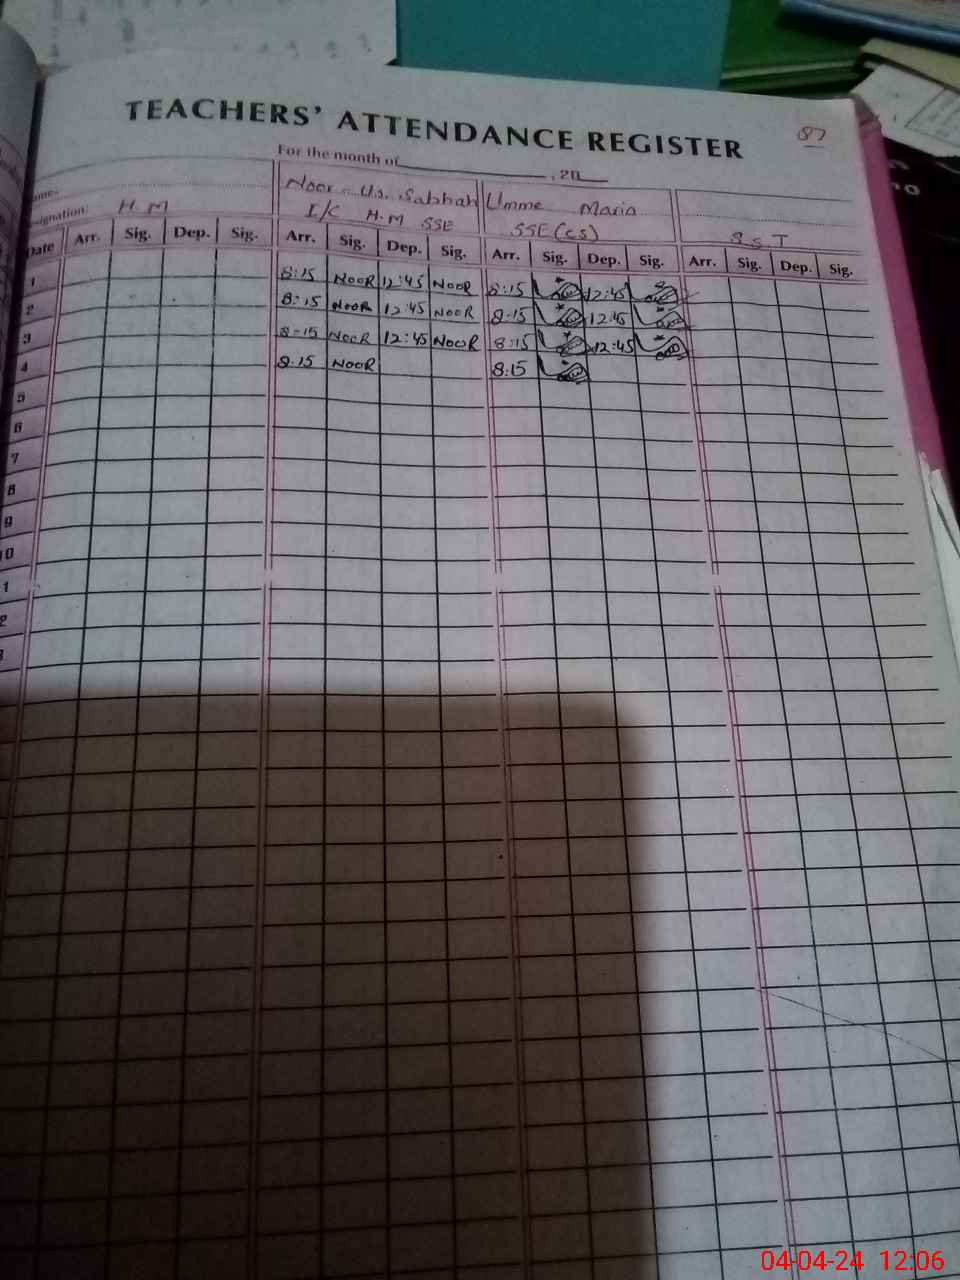 87
TEACHERS' ATTENDANCE REGISTER
For the month of , 20
Noor - Us. Sabbah Umme Maria
H.M I/C H.M SSE SSE (cs) S S T
Date Arr. Sig. Dep. Sig. Arr. Sig. Dep. Sig. Arr. Sig. Dep. Sig. Arr. Sig. Dep. Sig.
1 8:15 NOOR 12:45 NOOR 8:15 12:45
2 8:15 NOOR 12:45 NOOR 8:15 12:45
3 8:15 NOOR 12:45 NOOR 8:15 12:45
4 8:15 NOOR 8:15
5
6
7
8
9
10
1
2
04-04-24 12:06